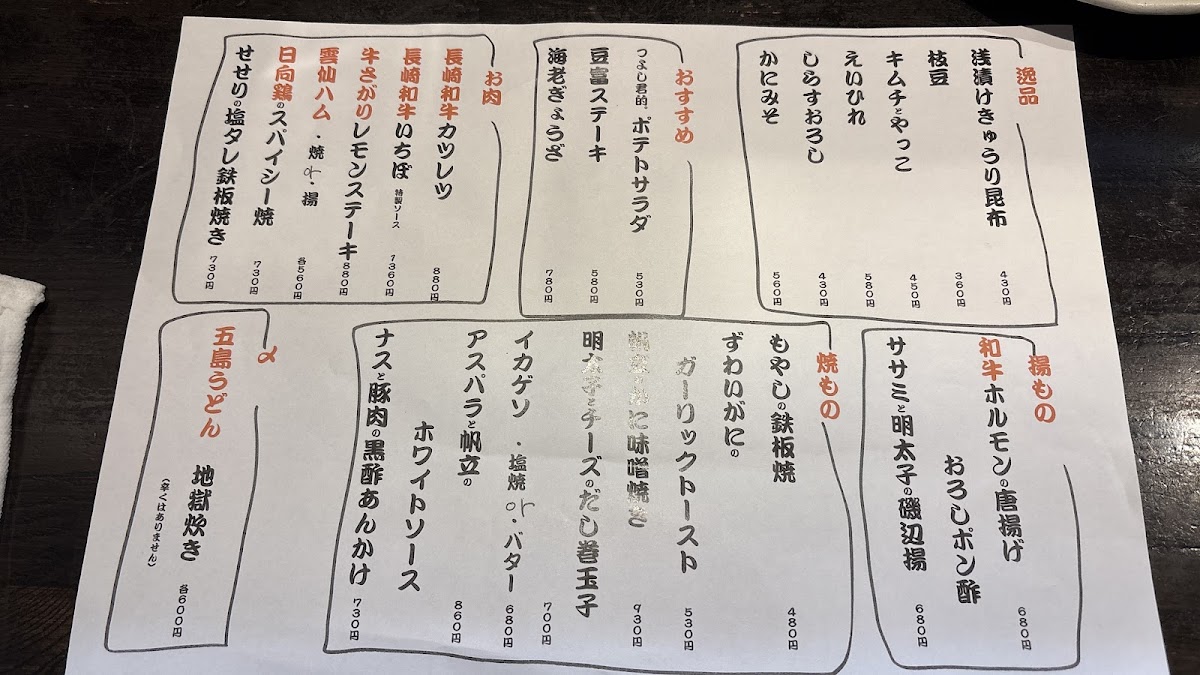 逸品
浅漬けきゅうり昆布 430円
枝豆 360円
キムチとやっこ 450円
えいひれ 580円
しらすおろし 430円
かにみそ 560円
おすすめ
つよし君的、ポテトサラダ 530円
豆富ステーキ 580円
海老ぎょうざ 780円
お肉
長崎和牛カツレツ 880円
長崎和牛いちぼ 特製ソース 1360円
牛さがりレモンステーキ 880円
雲仙ハム ・焼or・揚 各560円
日向鶏のスパイシー焼 730円
せせりの塩タレ鉄板焼き 730円
揚もの
和牛ホルモンの唐揚げ
おろしポン酢 680円
ササミと明太子の磯辺揚 680円
焼もの
もやしの鉄板焼 480円
ずわいがにの
ガーリックトースト 530円
に味噌焼き 930円
明太子とチーズのだし巻玉子 700円
イカゲソ ・塩焼or・バター 680円
アスパラと帆立の
ホワイトソース 860円
ナスと豚肉の黒酢あんかけ 730円
〆
五島うどん
地獄炊き 各600円
(辛くはありません)